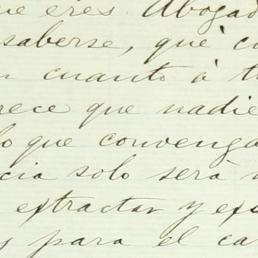 que eres Abogad
saberse, que c
n cuanto á t
rece que nadie
lo que convenga
cia solo será
extractar y ex
s para el ca